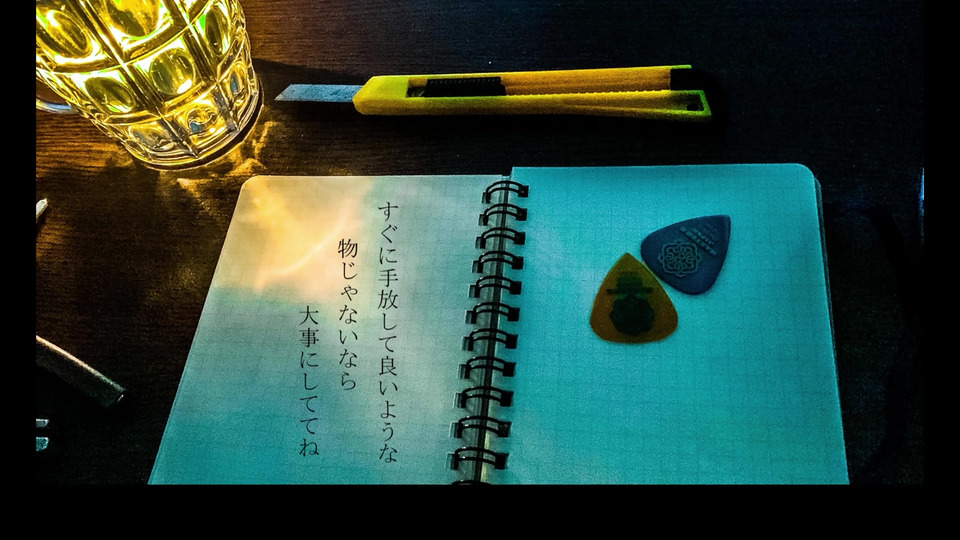 すぐに手放して良いような
物じゃないなら
大事にしててね